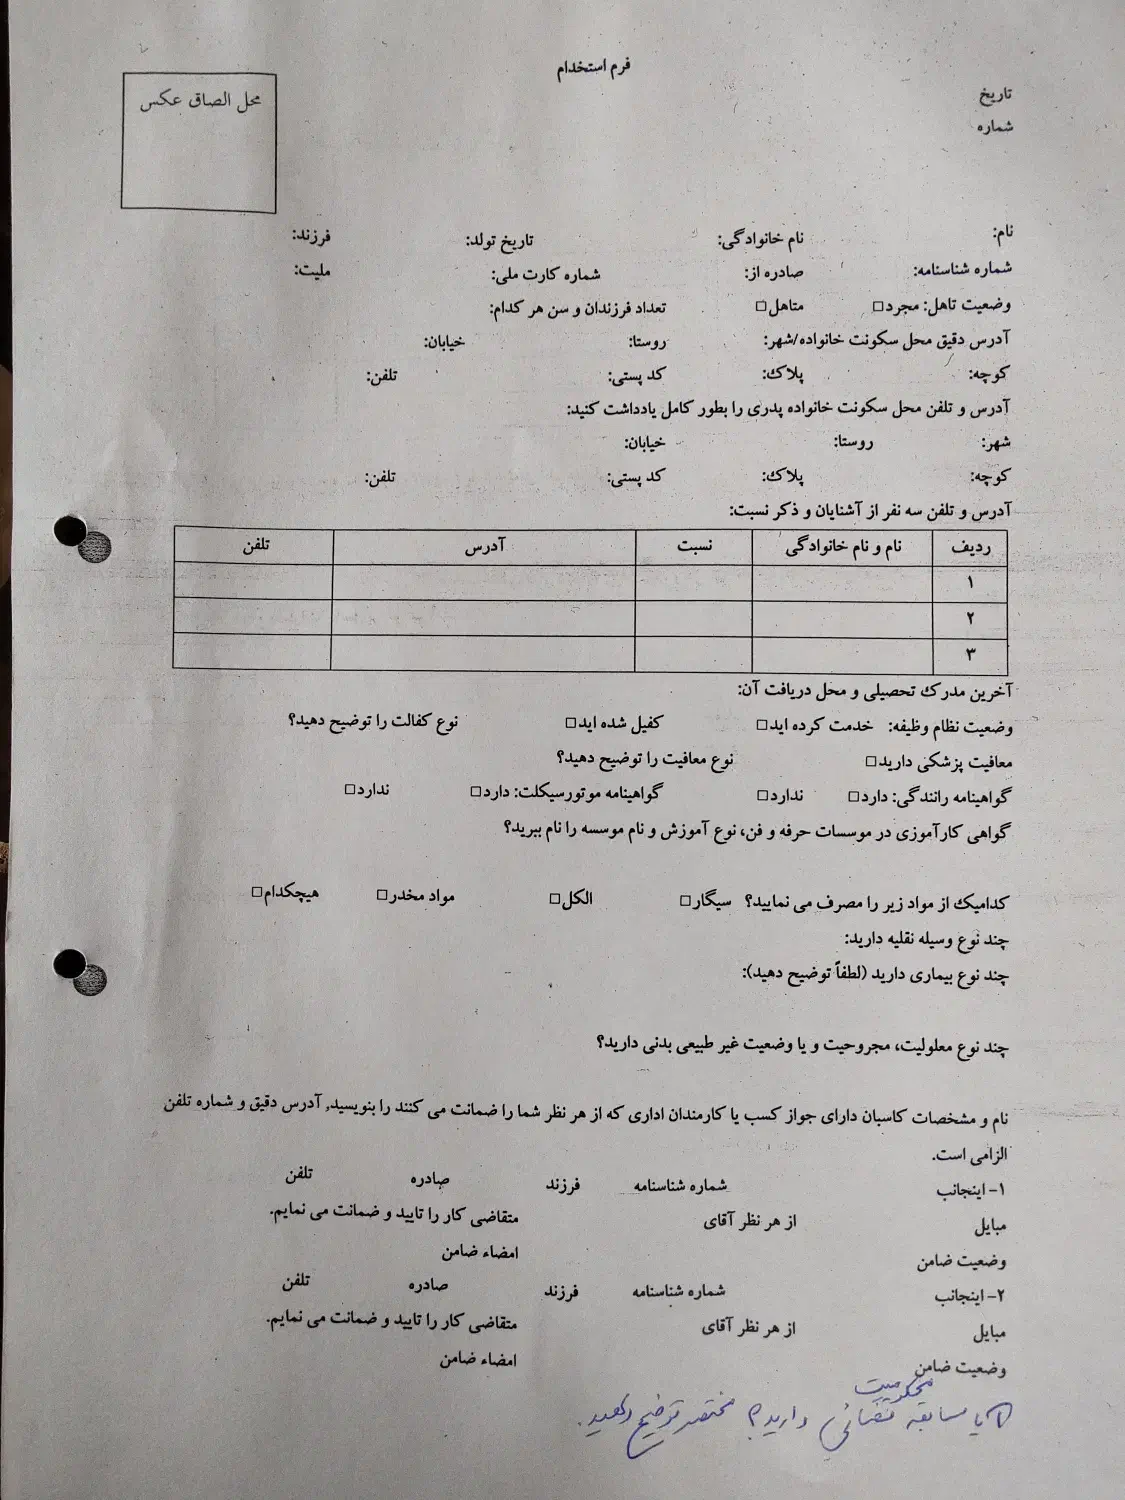 فرم استخدام
محل الصاق عکس
تاریخ
شماره
نام: نام خانوادگی: تاریخ تولد: فرزند:
شماره شناسنامه: صادره از: شماره کارت ملی: ملیت:
وضعیت تاهل: مجرد□ متاهل□ تعداد فرزندان و سن هر کدام:
آدرس دقیق محل سکونت خانواده/شهر: روستا: خیابان:
کوچه: پلاک: کد پستی: تلفن:
آدرس و تلفن محل سکونت خانواده پدری را بطور کامل یادداشت کنید:
شهر: روستا: خیابان:
کوچه: پلاک: کد پستی: تلفن:
آدرس و تلفن سه نفر از آشنایان و ذکر نسبت:
ردیف نام و نام خانوادگی نسبت آدرس تلفن
۱
۲
۳
آخرین مدرک تحصیلی و محل دریافت آن:
وضعیت نظام وظیفه: خدمت کرده اید□ کفیل شده اید□ نوع کفالت را توضیح دهید؟
معافیت پزشکی دارید□ نوع معافیت را توضیح دهید؟
گواهینامه رانندگی: دارد□ ندارد□ گواهینامه موتورسیکلت: دارد□ ندارد□
گواهی کارآموزی در موسسات حرفه و فن، نوع آموزش و نام موسسه را نام ببرید؟
کدامیک از مواد زیر را مصرف می نمایید؟ سیگار□ الکل□ مواد مخدر□ هیچکدام□
چند نوع وسیله نقلیه دارید:
چند نوع بیماری دارید (لطفاً توضیح دهید):
چند نوع معلولیت، مجروحیت و یا وضعیت غیر طبیعی بدنی دارید؟
نام و مشخصات کاسبان دارای جواز کسب یا کارمندان اداری که از هر نظر شما را ضمانت می کنند را بنویسید, آدرس دقیق و شماره تلفن
الزامی است.
۱- اینجانب شماره شناسنامه فرزند صادره تلفن
مبایل از هر نظر آقای متقاضی کار را تایید و ضمانت می نمایم.
وضعیت ضامن امضاء ضامن
۲- اینجانب شماره شناسنامه فرزند صادره تلفن
مبایل از هر نظر آقای متقاضی کار را تایید و ضمانت می نمایم.
وضعیت ضامن امضاء ضامن
محکومیت
آیا سابقه قضائی دارید؟ مختصر توضیح دهید.